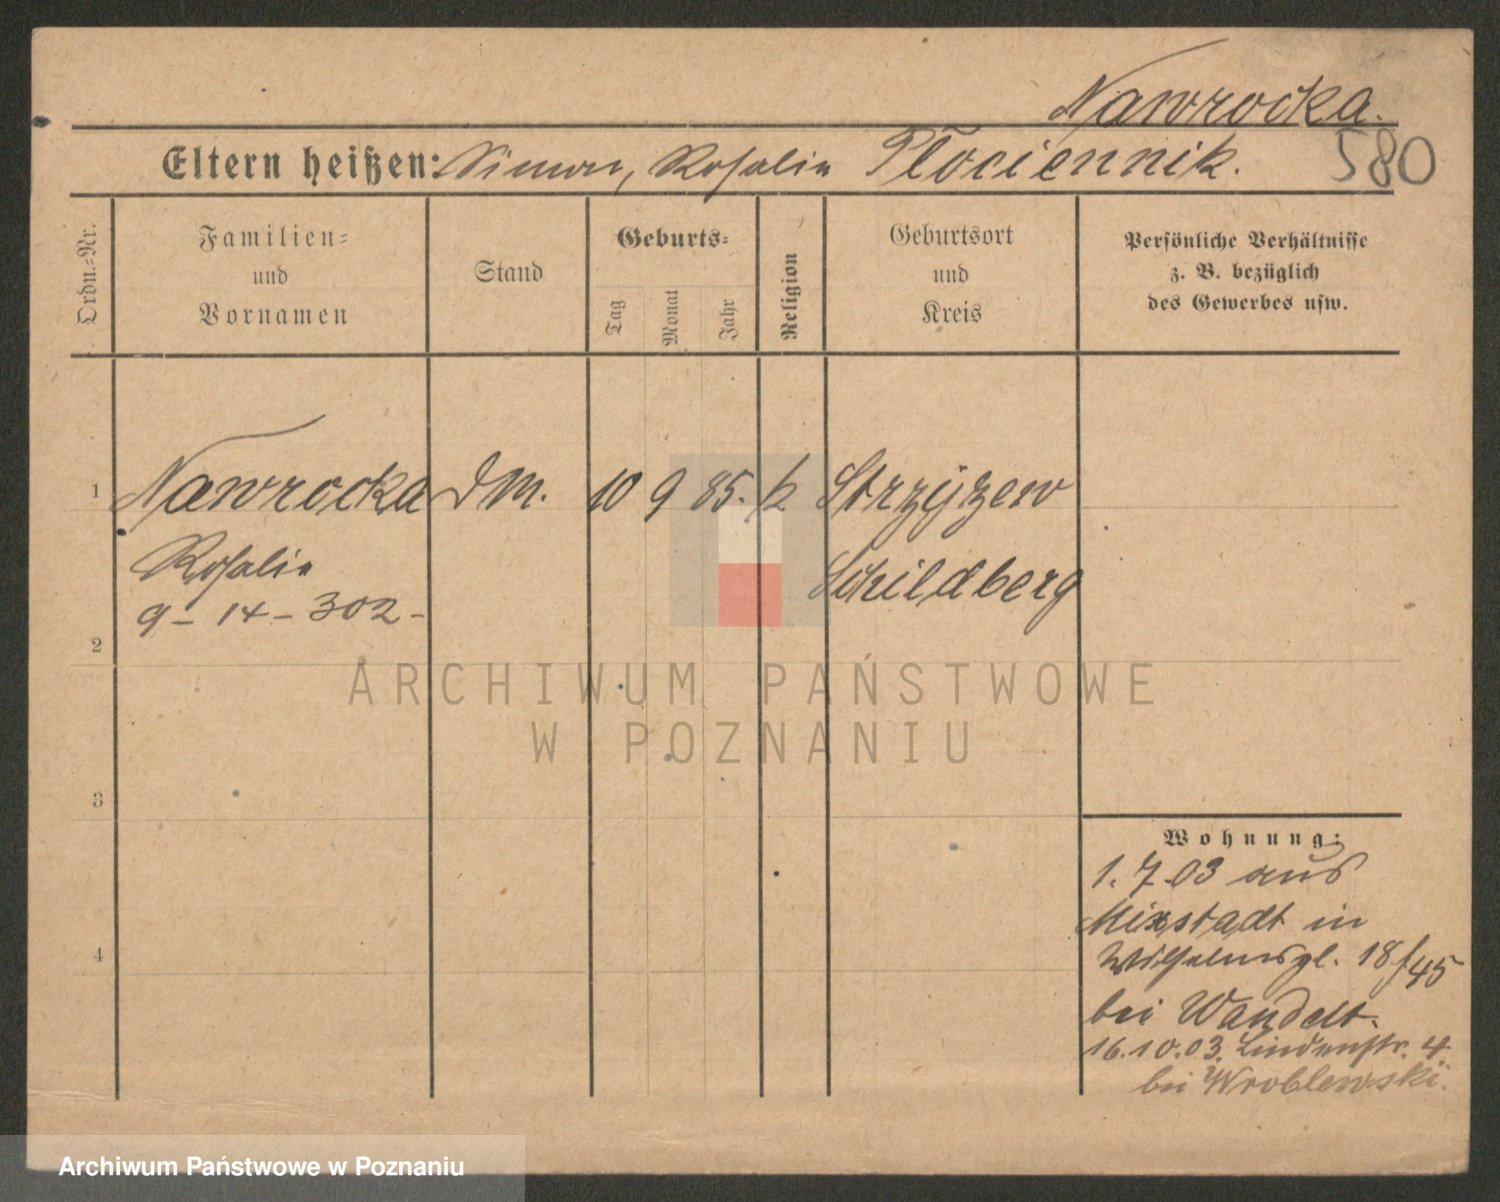 Nawrocka.
580
Eltern heißen: Simon, Rosalie Płociennik.
Ordn.-Nr.
Familien-
und
Vornamen
Stand
Geburts-
Tag
Monat
Jahr
Religion
Geburtsort
und
Kreis
Persönliche Verhältnisse
z. B. bezüglich
des Gewerbes usw.
1 Nawrocka DM. 10 9 85. k Strzyżew
Rosalie Schildberg
9 - 14 - 302 -
2
3
4
Wohnung:
1.7.03 aus
Mixstadt in
Wilhelmspl. 18/45
bei Wandelt.
16.10.03. Lindenstr. 4.
bei Wroblewski.
ARCHIWUM PAŃSTWOWE
W POZNANIU
Archiwum Państwowe w Poznaniu